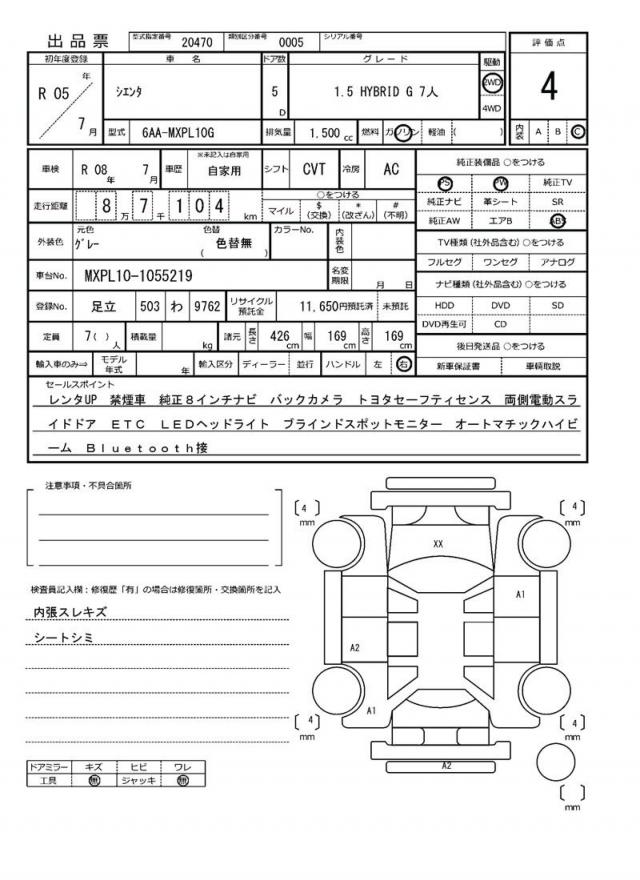 出品票 型式指定番号 20470 類別区分番号 0005 シリアル番号
初年度登録 車名 ドア数 グレード 駆動 評価点
R 05 年 7 月 シエンタ 5 D 1.5 HYBRID G 7人 2WD 4WD 4
型式 6AA-MXPL10G 排気量 1,500 cc 燃料 ガソリン 軽油 ( ) 内装 A B C
車検 R 08 年 7 月 車歴 ※未記入は自家用 自家用 シフト CVT 冷房 AC
走行距離 8 万 7 千 1 0 4 km ○をつける
マイル $ (交換) * (改ざん) # (不明)
外装色 元色 グレー 色替 ( 色替無 ) カラーNo. 内装色
車台No. MXPL10-1055219 名変期限 月 日
登録No. 足立 503 わ 9762 リサイクル預託金 11,650円預託済 未預託
定員 7( ) 人 積載量 kg 諸元 長さ 426 cm 幅 169 cm 高さ 169 cm
輸入車のみ⇒ モデル年式 年 輸入区分 ディーラー 並行 ハンドル 左 右
純正装備品 ○をつける
PS PW 純正TV
純正ナビ 革シート SR
純正AW エアB ABS
TV種類 (社外品含む) ○をつける
フルセグ ワンセグ アナログ
ナビ種類 (社外品含む) ○をつける
HDD DVD SD
DVD再生可 CD
後日発送品 ○をつける
新車保証書 車輌取説
セールスポイント
レンタUP 禁煙車 純正8インチナビ バックカメラ トヨタセーフティセンス 両側電動スラ
イドドア ETC LEDヘッドライト ブラインドスポットモニター オートマチックハイビ
ーム Bluetooth接
注意事項・不具合箇所
検査員記入欄:修復歴「有」の場合は修復箇所・交換箇所を記入
内張スレキズ
シートシミ
ドアミラー キズ ヒビ ワレ
工具 無 ジャッキ 無
[ 4 ] mm
[ 4 ] mm
XX
A1
A2
A1
[ 4 ] mm
[ 4 ] mm
A2
[ ] mm